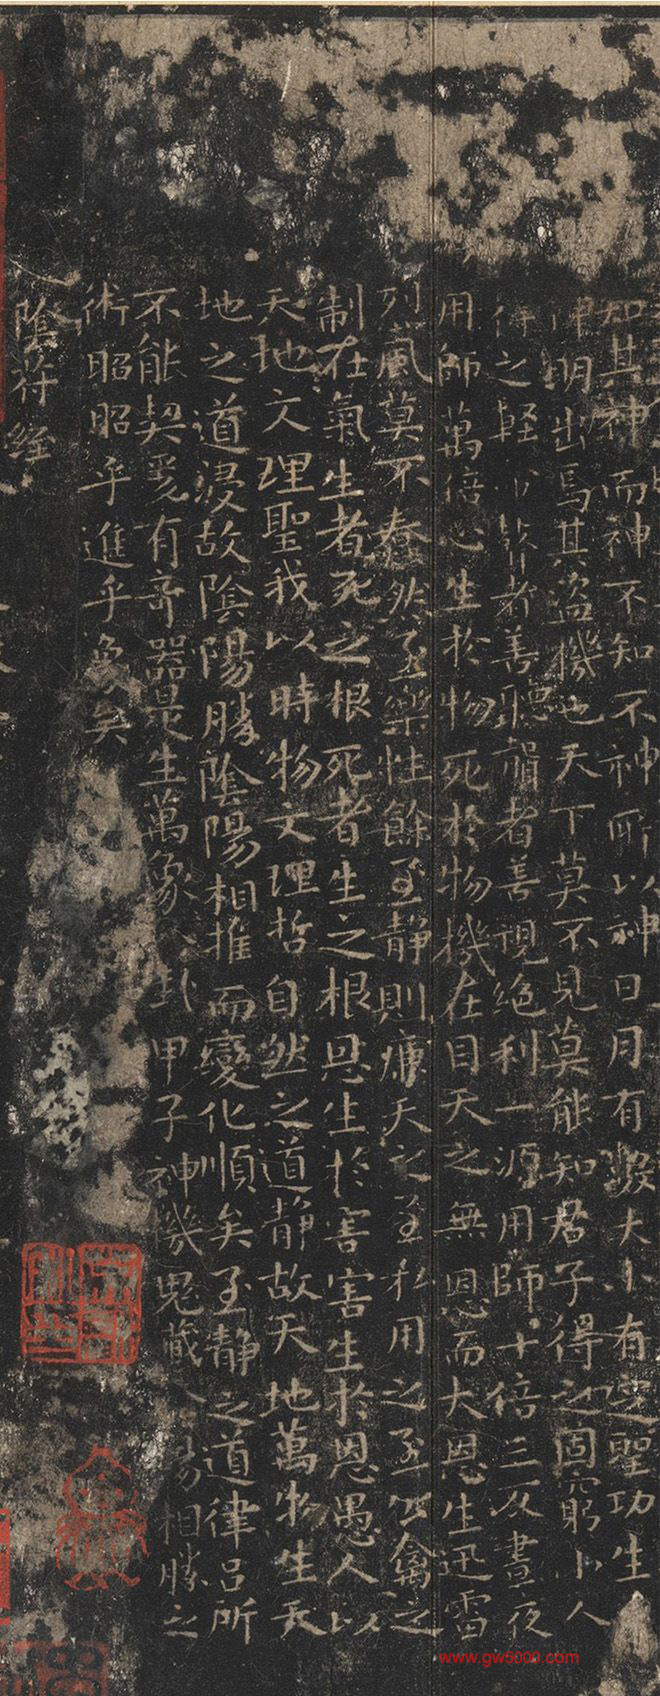 知其神而神不知不神所以神日月有數大小有定聖功生
神明出焉其盗機也天下莫不見莫能知君子得之固窮小人
得之輕命瞽者善聽聾者善視絕利一源用師十倍三反晝夜
用師萬倍心生於物死於物機在目天之無恩而大恩生迅雷
列風莫不蠢然至樂性餘至静則廉天之至私用之至公禽之
制在氣生者死之根死者生之根恩生於害害生於恩愚人以
天地文理聖我以時物文理哲自然之道静故天地萬物生天
地之道浸故陰陽勝陰陽相推而變化順矣至静之道律吕所
不能契爰有奇器是生萬象八卦甲子神機鬼藏陰陽相勝之
術昭昭乎進乎象矣
陰符經
www.gw5000.com